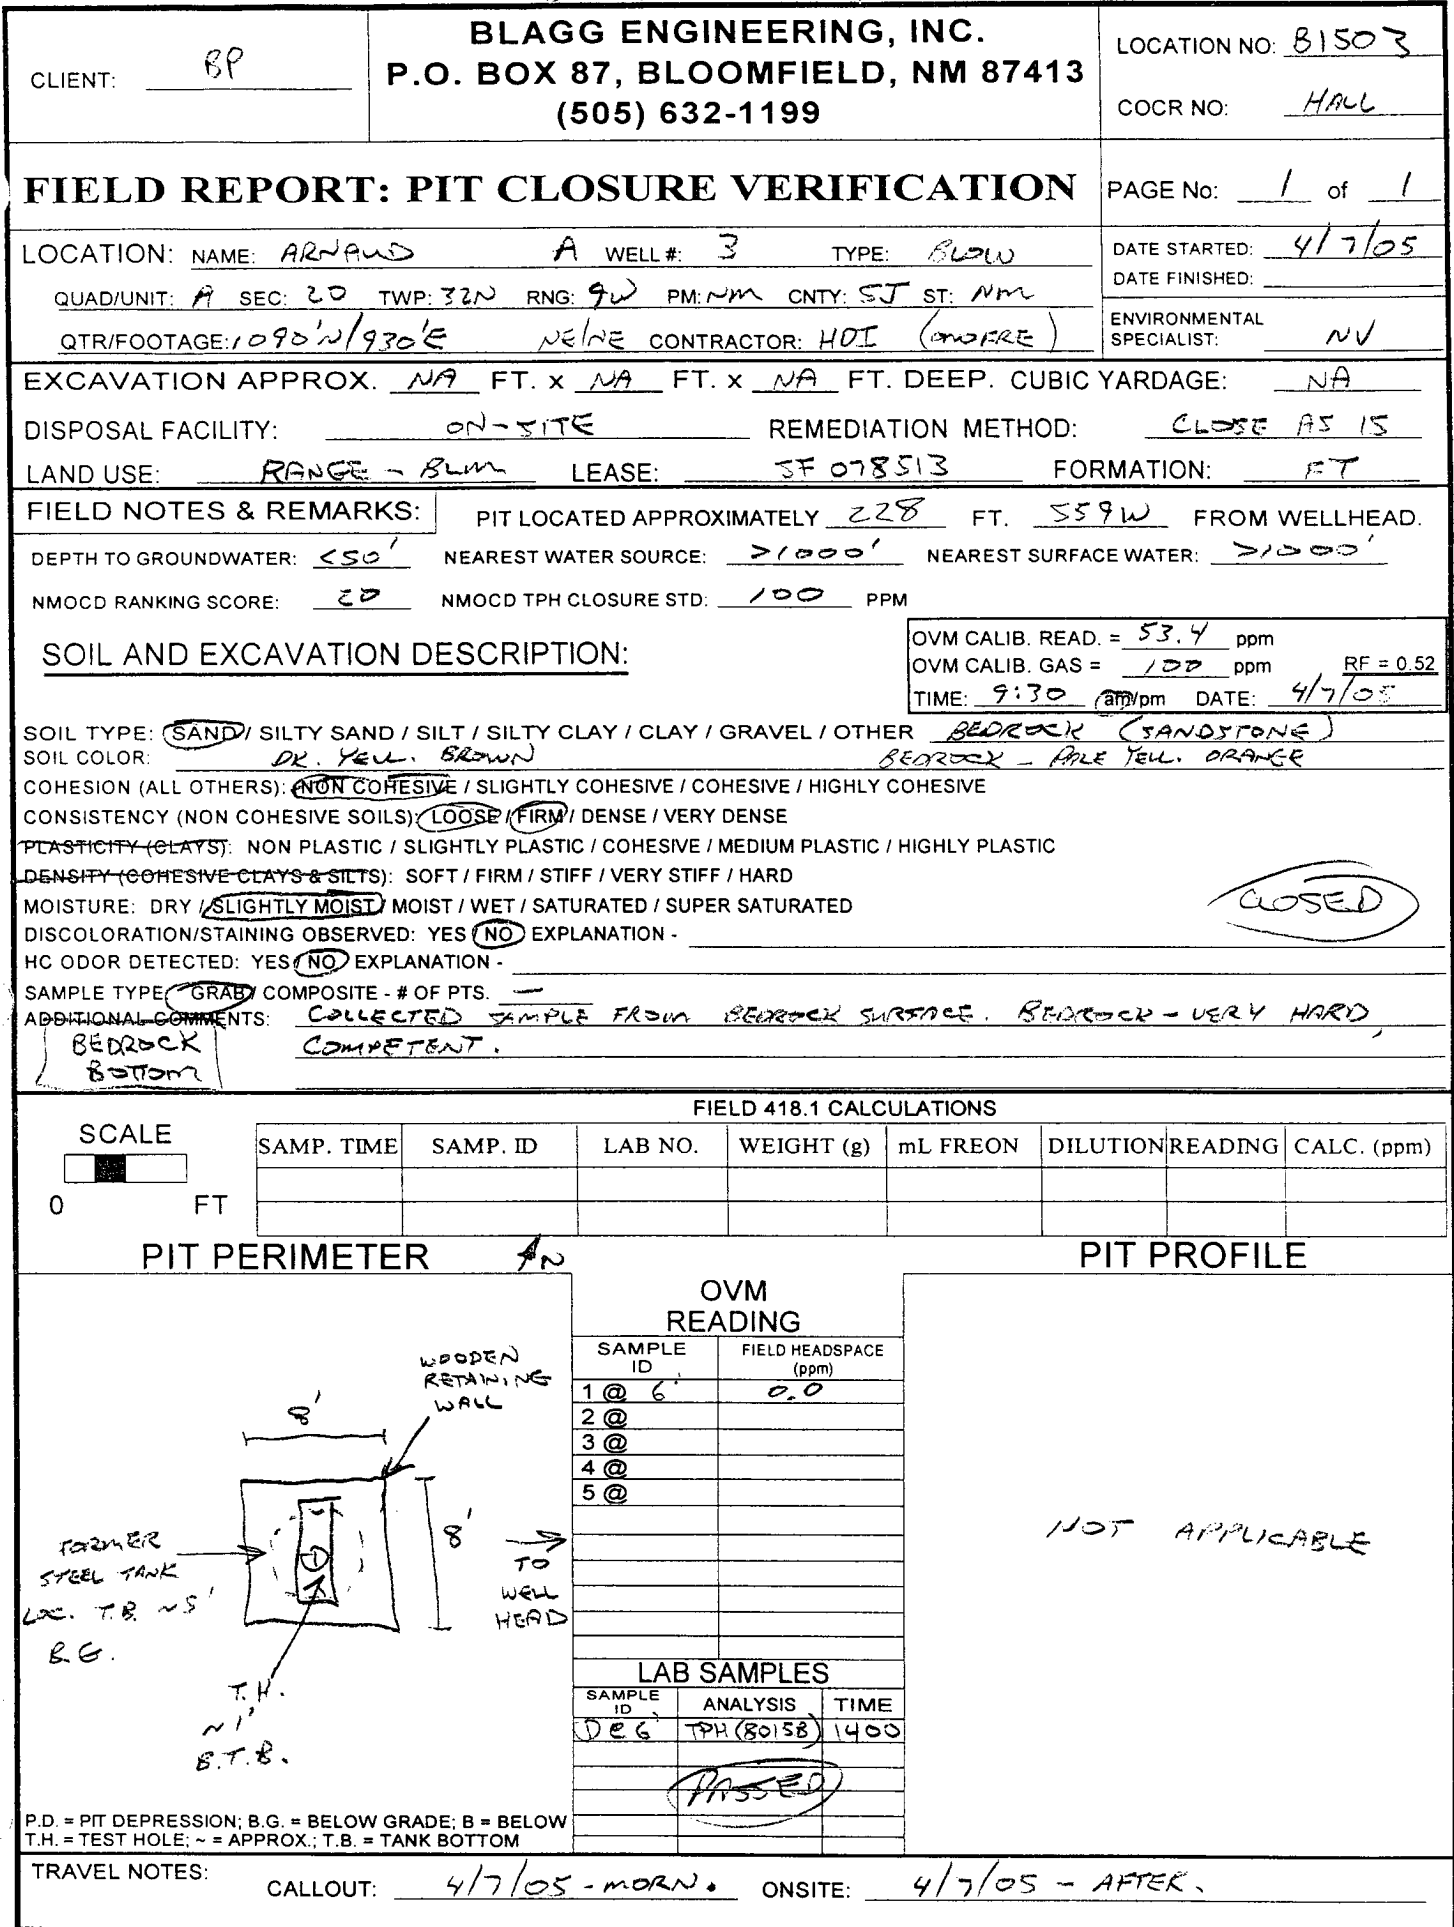 CLIENT: BP
BLAGG ENGINEERING, INC.
P.O. BOX 87, BLOOMFIELD, NM 87413
(505) 632-1199
LOCATION NO: B1503
COCR NO: HALL
FIELD REPORT: PIT CLOSURE VERIFICATION
PAGE No: 1 of 1
LOCATION: NAME: ARNAUD A WELL #: 3 TYPE: BLOW
QUAD/UNIT: A SEC: 20 TWP: 32N RNG: 9W PM: NM CNTY: SJ ST: NM
QTR/FOOTAGE: 1090'N/930'E NE/NE CONTRACTOR: HDI (ONOFRE)
DATE STARTED: 4/7/05
DATE FINISHED:
ENVIRONMENTAL SPECIALIST: NV
EXCAVATION APPROX. NA FT. x NA FT. x NA FT. DEEP. CUBIC YARDAGE: NA
DISPOSAL FACILITY: ON-SITE REMEDIATION METHOD: CLOSE AS IS
LAND USE: RANGE - BLM LEASE: SF 078513 FORMATION: FT
FIELD NOTES & REMARKS: PIT LOCATED APPROXIMATELY 228 FT. S59W FROM WELLHEAD.
DEPTH TO GROUNDWATER: <50' NEAREST WATER SOURCE: >1000' NEAREST SURFACE WATER: >1000'
NMOCD RANKING SCORE: 20 NMOCD TPH CLOSURE STD: 100 PPM
SOIL AND EXCAVATION DESCRIPTION:
OVM CALIB. READ. = 53.4 ppm
OVM CALIB. GAS = 100 ppm RF = 0.52
TIME: 9:30 am/pm DATE: 4/7/05
SOIL TYPE: SAND / SILTY SAND / SILT / SILTY CLAY / CLAY / GRAVEL / OTHER BEDROCK (SANDSTONE)
SOIL COLOR: DK. YELL. BROWN BEDROCK - PALE YELL. ORANGE
COHESION (ALL OTHERS): NON COHESIVE / SLIGHTLY COHESIVE / COHESIVE / HIGHLY COHESIVE
CONSISTENCY (NON COHESIVE SOILS): LOOSE / FIRM / DENSE / VERY DENSE
PLASTICITY (CLAYS): NON PLASTIC / SLIGHTLY PLASTIC / COHESIVE / MEDIUM PLASTIC / HIGHLY PLASTIC
DENSITY (COHESIVE CLAYS & SILTS): SOFT / FIRM / STIFF / VERY STIFF / HARD
MOISTURE: DRY / SLIGHTLY MOIST / MOIST / WET / SATURATED / SUPER SATURATED
CLOSED
DISCOLORATION/STAINING OBSERVED: YES NO EXPLANATION -
HC ODOR DETECTED: YES NO EXPLANATION -
SAMPLE TYPE: GRAB / COMPOSITE - # OF PTS. —
ADDITIONAL COMMENTS: COLLECTED SAMPLE FROM BEDROCK SURFACE. BEDROCK - VERY HARD,
COMPETENT.
BEDROCK
BOTTOM
FIELD 418.1 CALCULATIONS
SCALE
0 FT
SAMP. TIME SAMP. ID LAB NO. WEIGHT (g) mL FREON DILUTION READING CALC. (ppm)
PIT PERIMETER N
PIT PROFILE
OVM
READING
SAMPLE ID FIELD HEADSPACE (ppm)
1 @ 6' 0.0
2 @
3 @
4 @
5 @
WOODEN
RETAINING
WALL
8'
8'
FORMER
STEEL TANK
LOC. T.B. ~5'
B.G.
TO
WELL
HEAD
T.H.
~1'
B.T.B.
1
NOT APPLICABLE
LAB SAMPLES
SAMPLE ID ANALYSIS TIME
①@6' TPH (8015B) 1400
PASSED
P.D. = PIT DEPRESSION; B.G. = BELOW GRADE; B = BELOW
T.H. = TEST HOLE; ~ = APPROX.; T.B. = TANK BOTTOM
TRAVEL NOTES: CALLOUT: 4/7/05 - MORN. ONSITE: 4/7/05 - AFTER.